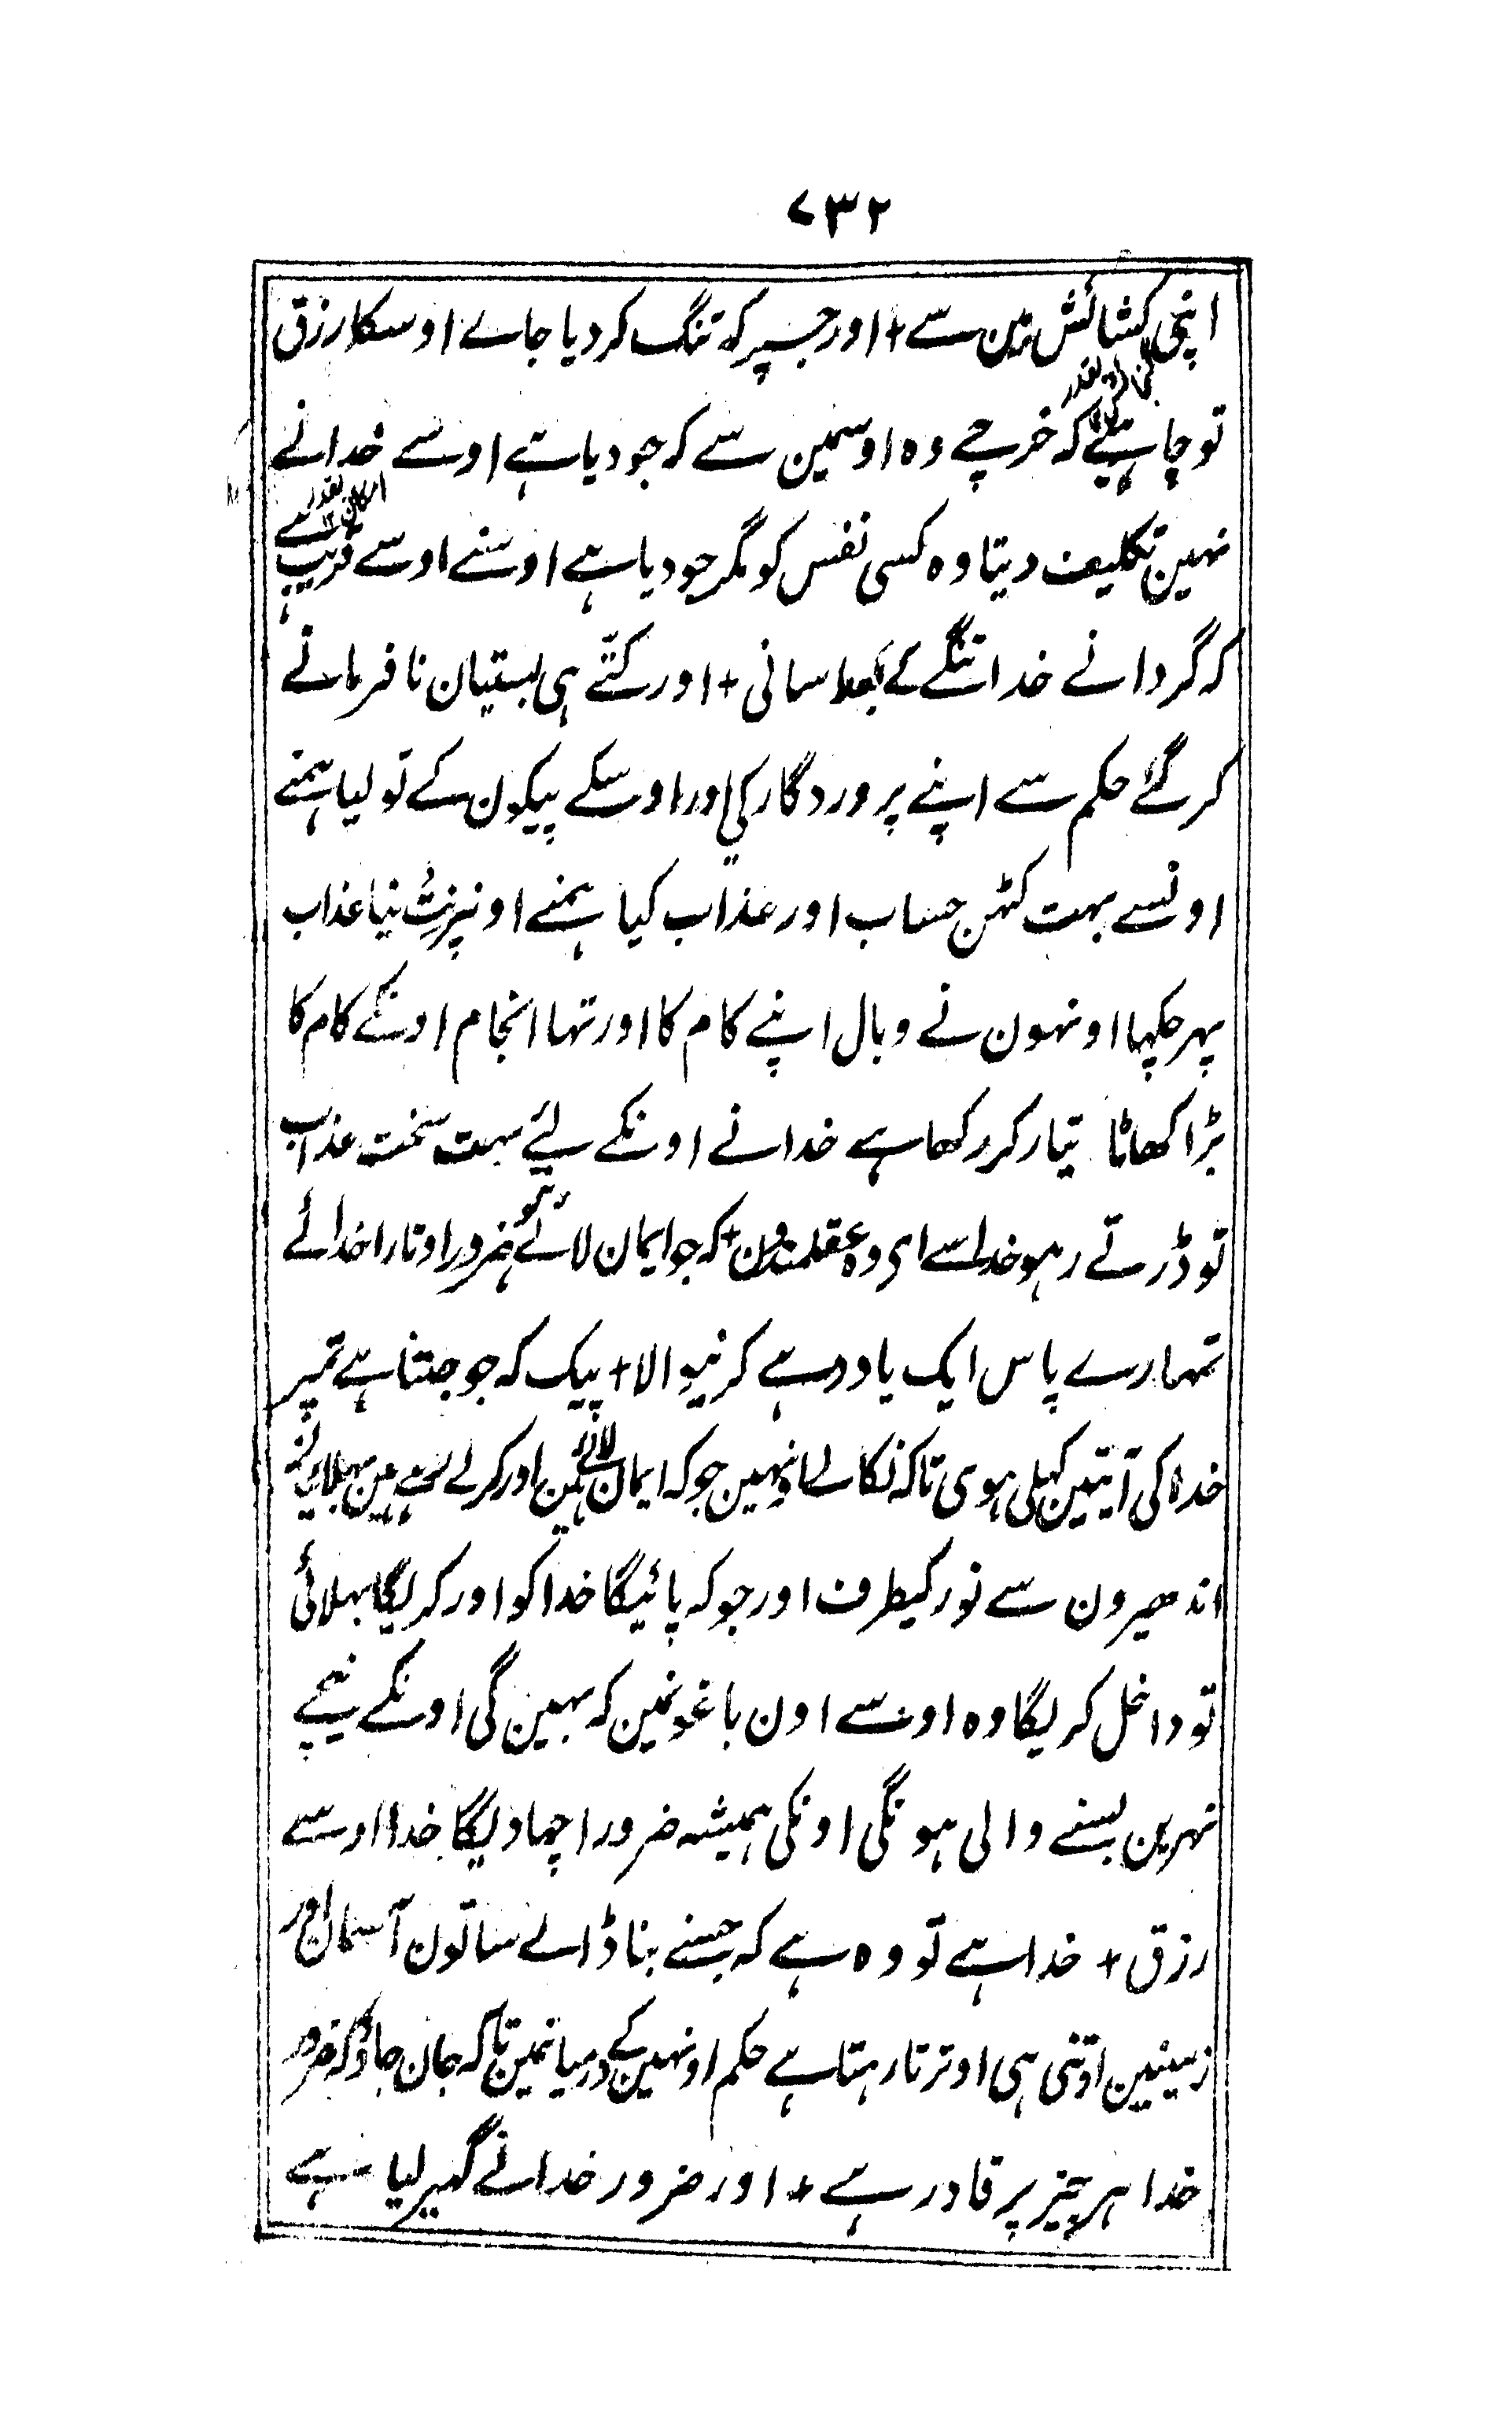 ۷۳۲
اپنی کشائش مین سے + اور جسپر کہ تنگ کر دیا جاے اوسکا رزق
تو چاہیئے کہ خرچے وہ اوسمین سے کہ جو دیا ہے اوسے خدا نے
بقدر امکان ۱۲
نہین تکلیف دیتا وہ کسی نفس کو مگر جو دیا ہے اوسنے اوسے قریب ہے
کہ گردانے خدا تنگے کے بعد اسانی + اور کتّے ہی بستیان نافرمانے
کر گئے حکم سے اپنے پروردگار کی اور اوسکے پیکون کے تو لیا ہمنے
اونسے بہت کٹھن حساب اور عذاب کیا ہمنے اونپر نِت نیا عذاب
پہر چکہا اونہون نے وبال اپنے کام کا اور تہا انجام اونکے کام کا
بڑا کھاٹا تیار کر رکھا ہے خدا نے اونکے لیئے بہت سخت عذاب
تو ڈرتے رہو خدا سے ای وہ عقلمندون + کہ جو ایمان لائے ہو ضرور اوتارا خدا نے
تمہارے پاس ایک یاد دہے کرنیوالا + پیک کہ جو جتنا ہے تمپر
خدا کی آیتین کہلی ہوی تاکہ نکالے اونہین جو کہ ایمان لائے ہین اور کرتے رہے ہین بہلائی
اندھیرون سے نور کیطرف اور جو کہ پائیگا خدا کو اور کریگا بہلائی
تو داخل کریگا وہ اوسے اون باغونمین کہ بہین گی اونکے نیچے
نہرین بسنے والی ہونگی اونکی ہمیشہ ضرور اچھا دیگا خدا اوسے
رزق + خدا ہے تو وہ ہے کہ جسنے بنا ڈالے ساتون آسمان اور
زمینین اوتنی ہی اوترتا رہتا ہے حکم اونہین کے درمیانمین تاکہ جان جاؤ کہ ضرور
خدا ہر چیز پر قادر ہے + اور ضرور خدا نے گہیر لیا ہے